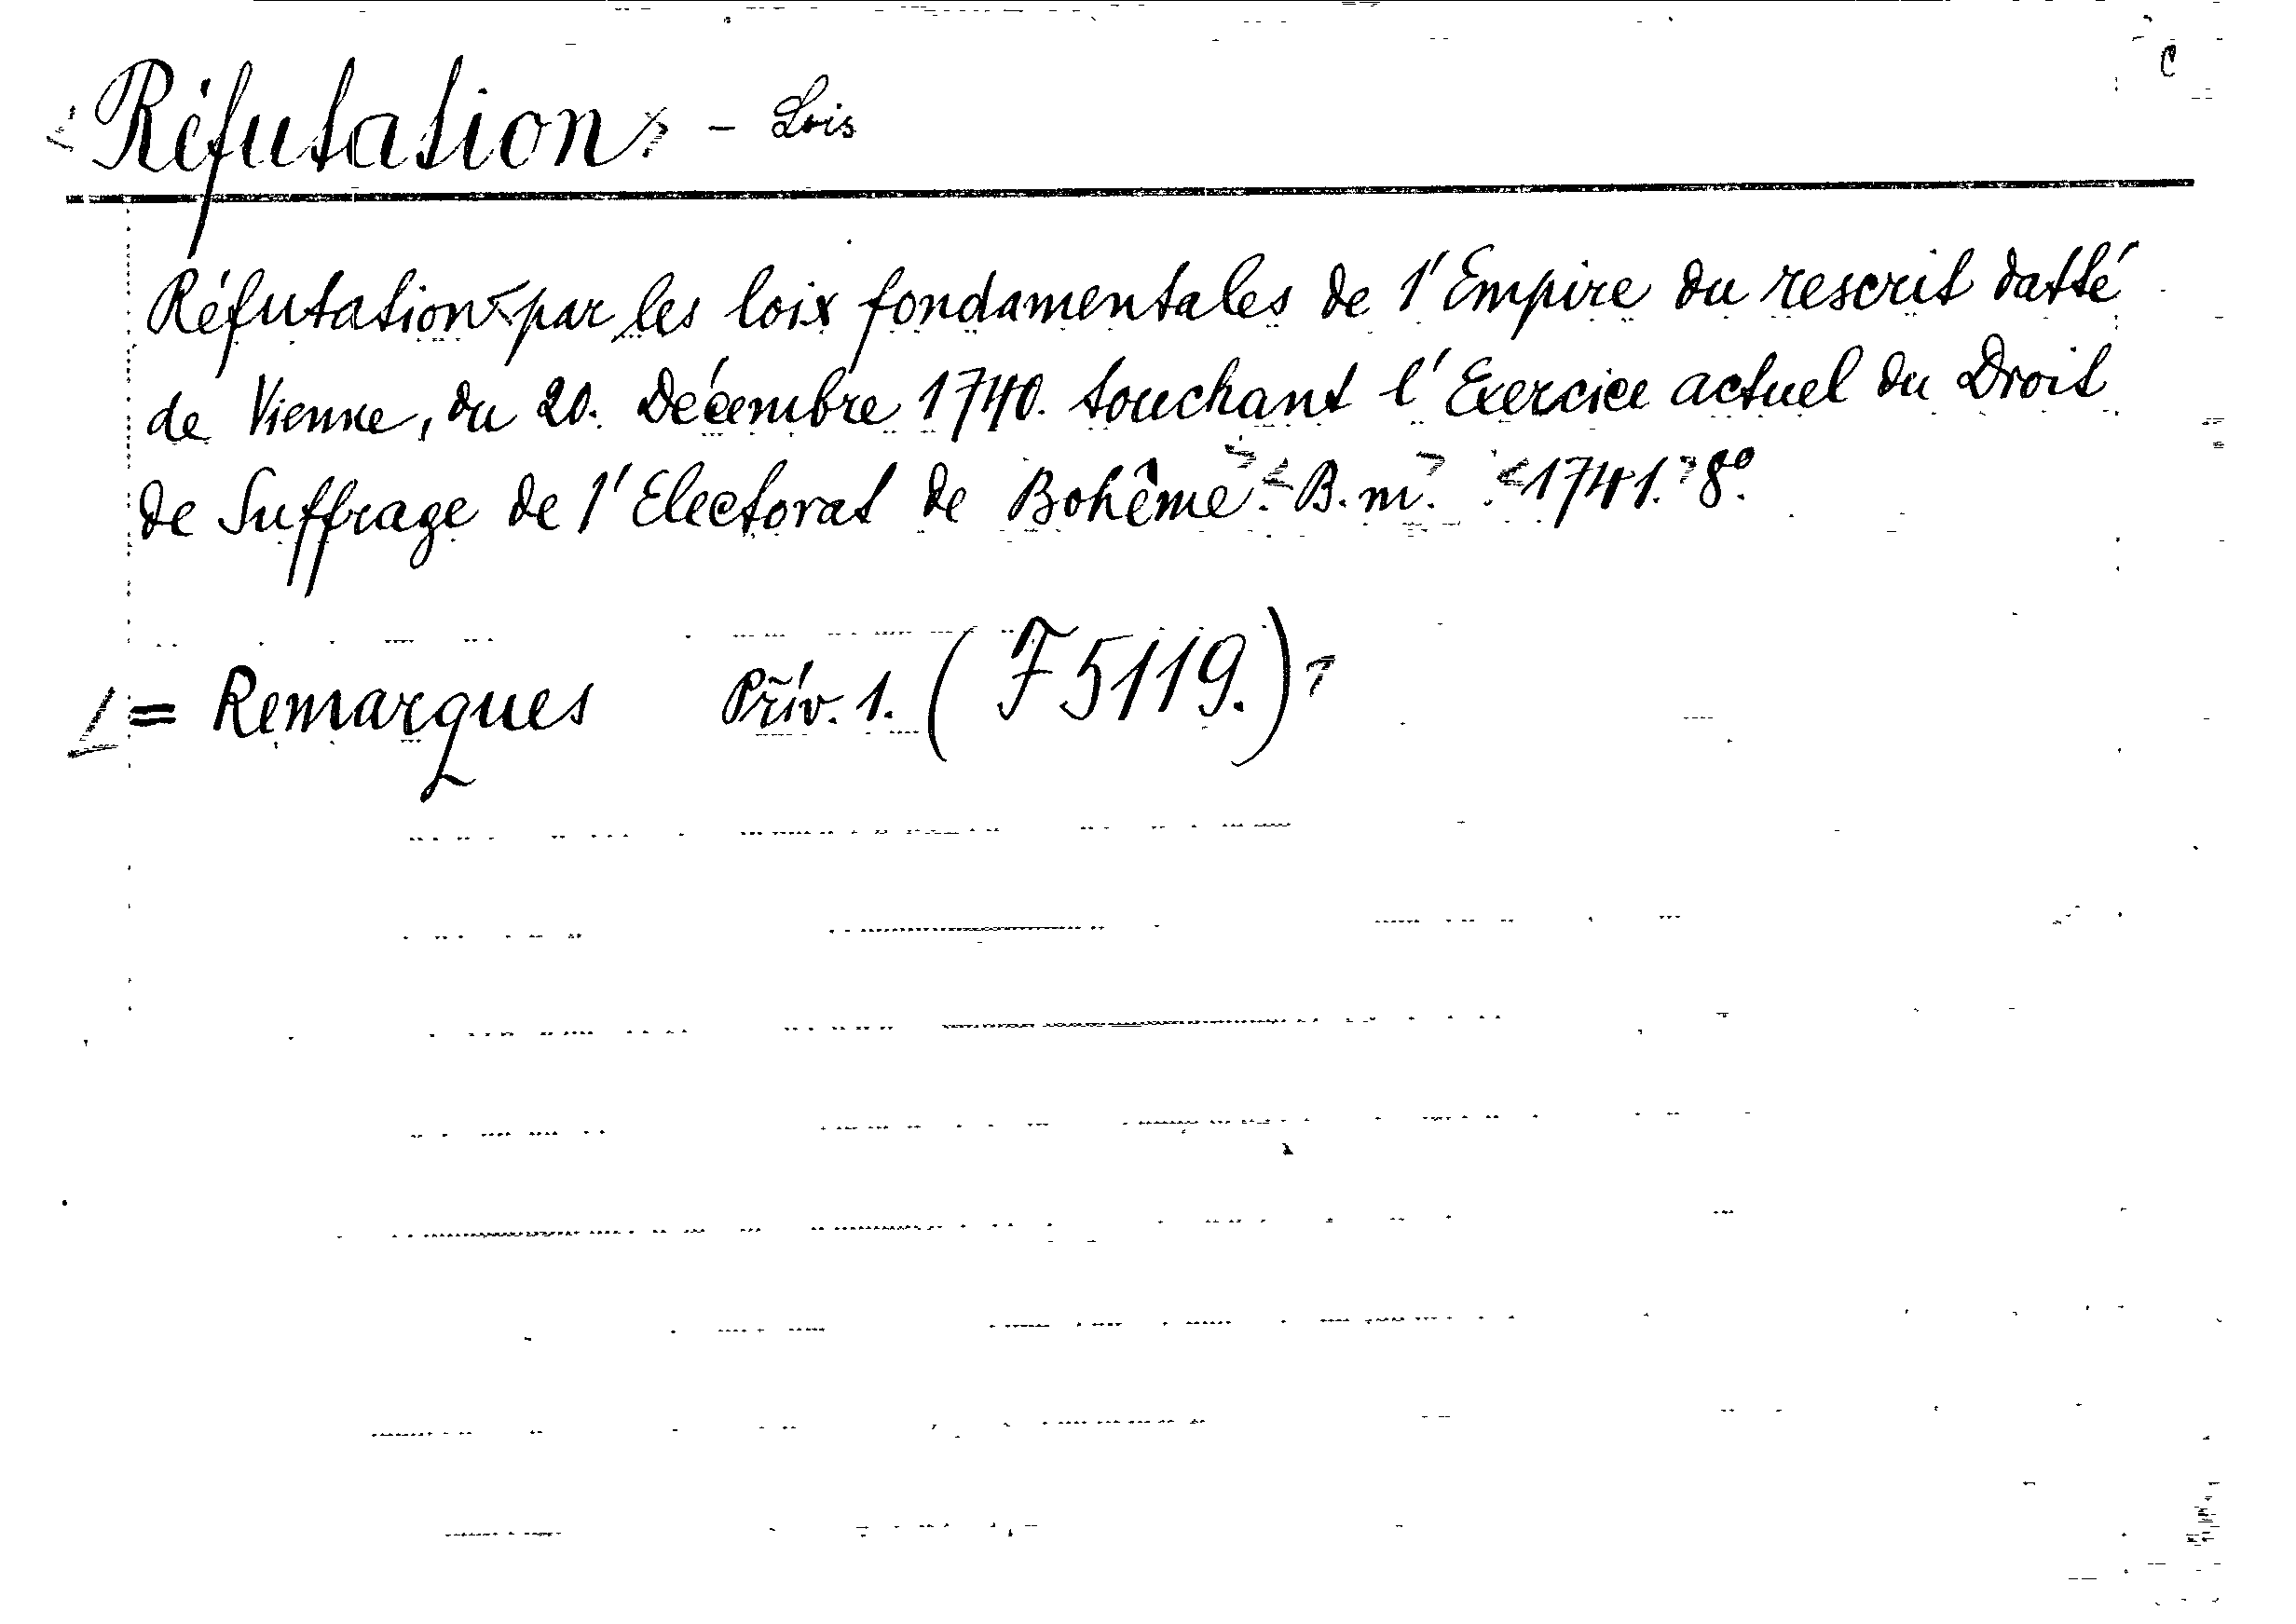 C
Réfutation - Lois
Réfutation par les loix fondamentales de l'Empire du rescrit datté
de Vienne, du 20. Décembre 1740. touchant l'Exercice actuel du Droit
de Suffrage de l'Electorat de Bohême. B. m. 1741. 8º.
= Remarques Priv. 1. (F 5119.)